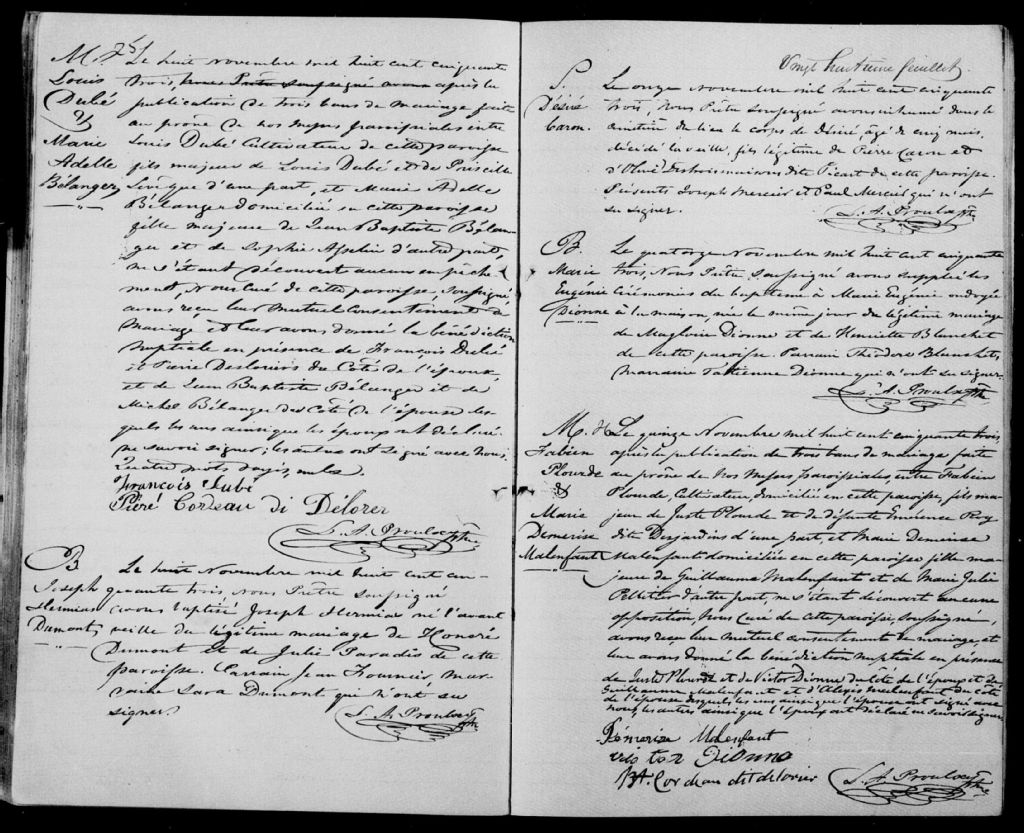 M. 75
Louis
Dubé
&
Marie
Adelle
Bélanger
Le huit Novembre mil huit cent cinquante
trois, nous Prêtre soussigné avons après la
publication de trois bans de mariage faite
au prône de nos messes paroissiales entre
Louis Dubé Cultivateur de cette paroisse
fils majeur de Louis Dubé et de Priscille
Levêque d'une part, et Marie Adelle
Bélanger domiciliée en cette paroisse
fille majeure de Jean Baptiste Bélan-
ger et de Sophie Asselin d'autre part,
ne s'étant découvert aucun empêche-
ment, Nous Curé de cette paroisse, soussigné,
avons reçu leur mutuel consentement de
mariage et leur avons donné la bénédiction
nuptiale en présence de François Dubé
et Pierre Deslories du Côté de l'époux
et de Jean Baptiste Bélanger et de
Michel Bélanger du Côté de l'épouse les-
quels les uns ainsi que les époux ont déclaré
ne savoir signer; les autres ont signé avec nous,
Quatre mots rayés nuls.
François Dubé
Piéré Cordeau di Délorer
L. A. Proulx Ptre
B
Joseph
Hermias
Dumont
Le huit Novembre mil huit cent cin-
quante trois, Nous Prêtre soussigné
avons baptisé Joseph Hermias né l'avant
veille du légitime mariage de Honoré
Dumont et de Julie Paradis de cette
paroisse. Parrain Jean Fournier, mar-
raine Sara Dumont qui n'ont su
signer.
L. A. Proulx Ptre
Vingt huitième feuillet
S.
Désiré
Caron.
Le onze Novembre mil huit cent cinquante
trois, Nous Prêtre soussigné avons inhumé dans le
cimetière du lieu le corps de Désiré âgé de cinq mois,
décédé la veille, fils légitime de Pierre Caron et
d'Olive Destroismaisons dite Picart de cette paroisse.
Présents Joseph Mercier et Paul Mercier qui n'ont
su signer.
L. A. Proulx Ptre
B.
Marie
Eugénie
Dionne
Le quatorze Novembre mil huit cent cinquante
trois, Nous Prêtre soussigné avons suppléé les
Cérémonies du baptême à Marie Eugénie ondoyée
à la maison, née le même jour du légitime mariage
de Magloire Dionne et de Henriette Blanchet
de cette paroisse. Parrain Théodore Blanchet,
marraine Dionne qui n'ont su signer.
L. A. Proulx Ptre
M.
Fabien
Plourde
&
Marie
Demerise
Malenfant
Le quinze Novembre mil huit cent cinquante trois,
après la publication de trois bans de mariage faite
au prône de nos Messes Paroissiales, entre Fabien
Plourde, Cultivateur, domicilié en cette paroisse, fils ma-
jeur de Juste Plourde et de défunte Emérence Roy
dit Desjardins d'une part, et Marie Demerise
Malenfant domiciliée en cette paroisse fille ma-
jeure de Guillaume Malenfant et de Marie Julie
Pelletier d'autre part, ne s'étant découvert aucune
opposition, Nous Curé de cette paroisse, soussigné,
avons reçu leur mutuel consentement de mariage, et
leur avons donné la bénédiction nuptiale en présence
de Juste Plourde et de Victor Dionne du côté de l'époux et de
Guillaume Malenfant et d'Alexis Malenfant du côté
de l'épouse desquels les uns ainsi que l'épouse ont signé avec
nous, les autres ainsi que l'époux ont déclaré ne savoir signer.
Démerise Malenfant
victor Dionne
Cordeau dit delorier
L. A. Proulx Ptre